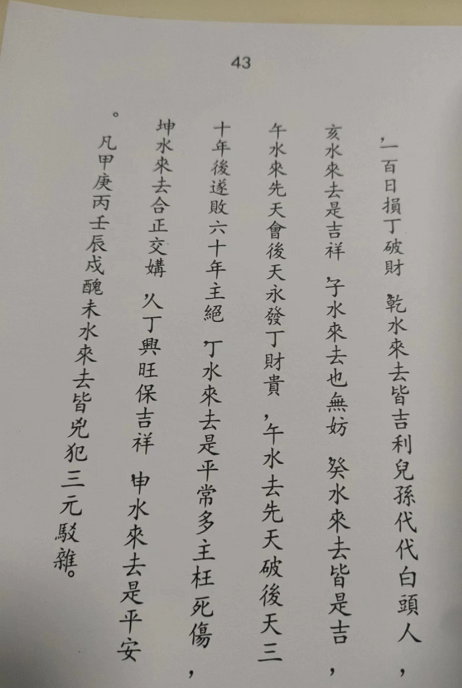 43
，一百日損丁破財，乾水來去皆吉利兒孫代代白頭人，
亥水來去是吉祥，子水來去也無妨，癸水來去皆是吉，
午水來先天會後天永發丁財貴，午水去先天破後天三
十年後遂敗六十年主絕，丁水來去是平常多主枉死傷，
坤水來去合正交媾，人丁興旺保吉祥，申水來去是平安
。
凡甲庚丙壬辰戍醜未水來去皆兇犯三元駁雜。